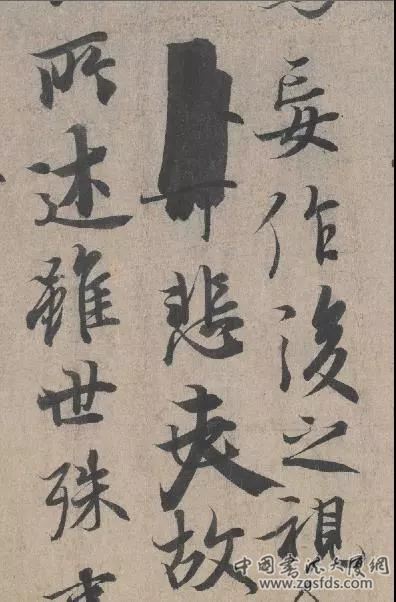 妄作後之視
悲夫故
所述雖世殊
中国書法大廈網
www.zgsfds.com